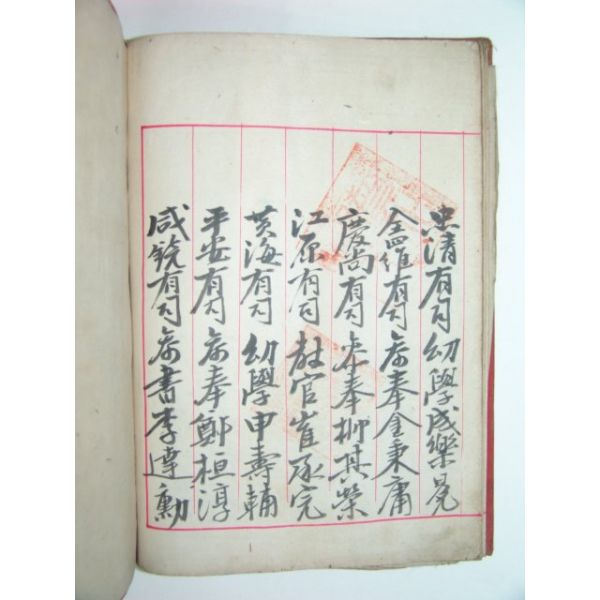 忠清有司 幼學 成樂晃
全羅有司 前參奉 金秉庸
慶尚有司 參奉 柳其榮
江原有司 敎官 崔承完
黃海有司 幼學 申壽輔
平安有司 前參奉 鄭桓淳
咸鏡有司 前 書 李達勳